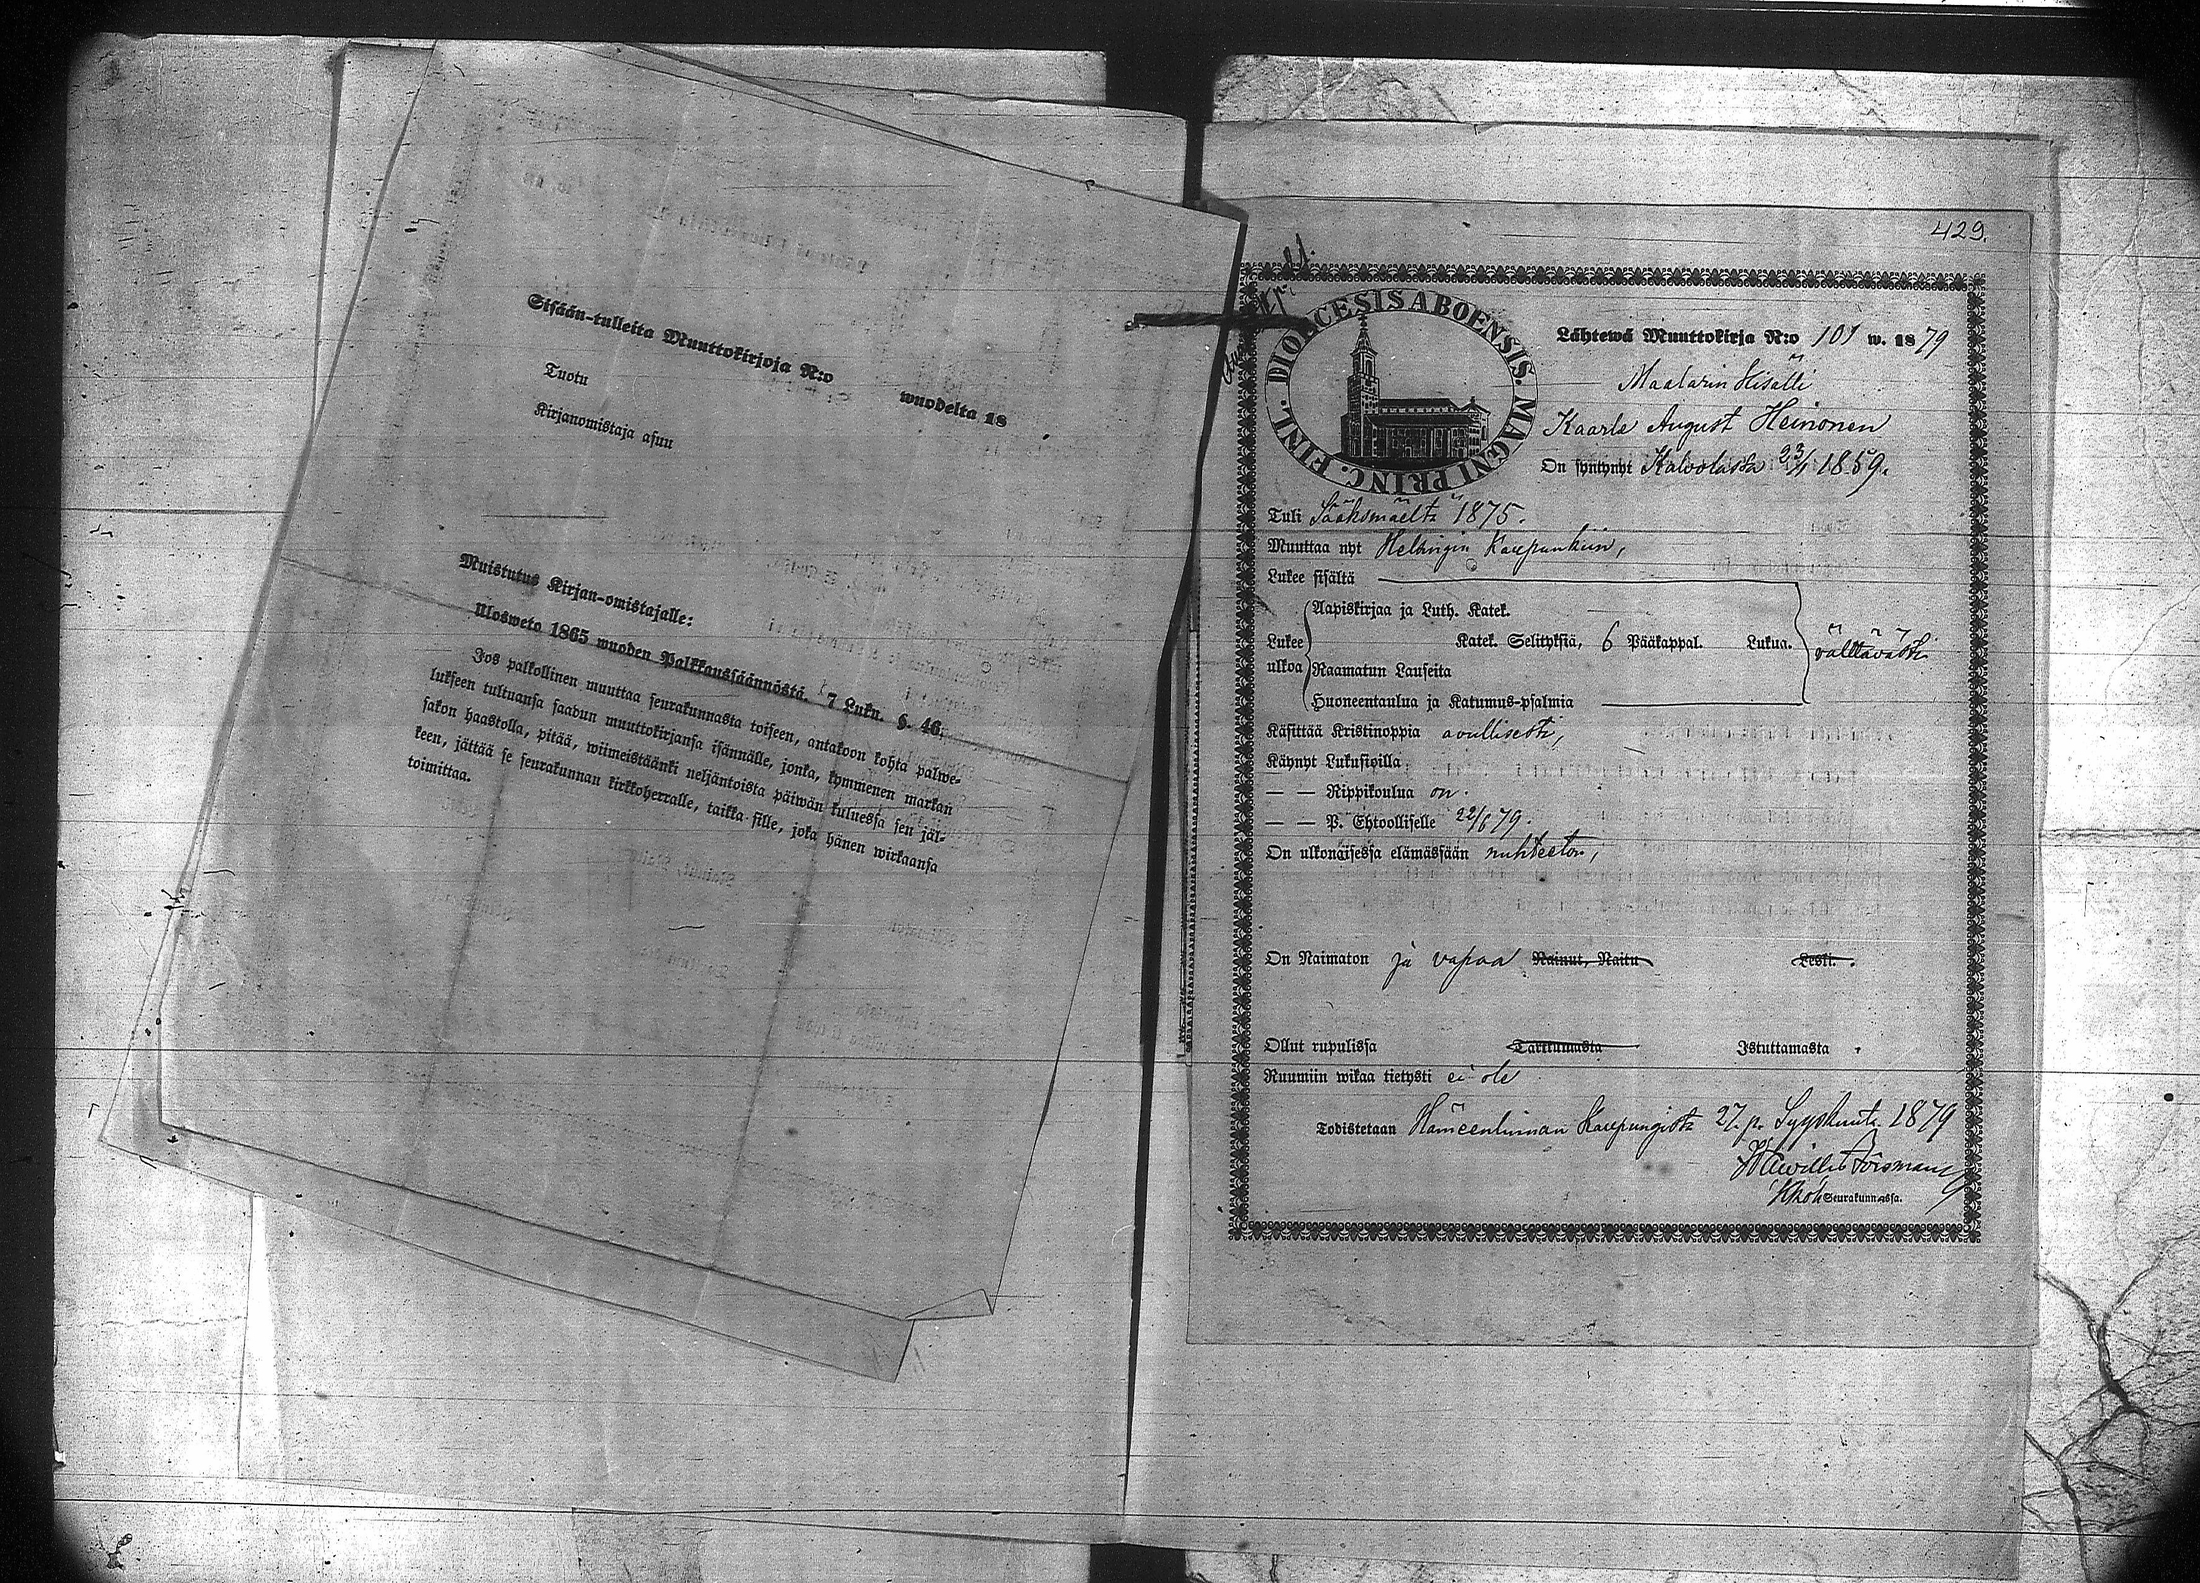 Sisään-tulleita Muuttokirjoja N:o wuodelta 18
Tuotu
Kirjanomistaja asuu
Muistutus Kirjan-omistajalle:
Ulosweto 1865 wuoden Palkkaussäännöstä. 7 Luku. §. 46.
Jos palkollinen muuttaa seurakunnasta toiseen, antakoon kohta palwe-
lukseen tultuansa saadun muuttokirjansa isännälle, jonka, kymmenen markan
sakon haastolla, pitää, wiimeistäänki neljäntoista päiwän kuluessa sen jäl-
keen, jättää se seurakunnan kirkkoherralle, taikka sille, joka hänen wirkaansa
toimittaa.
429.
DIOECESIS ABOENSIS. MAGNI PRINC. FINL.
Lähtewä Muuttokirja N:o 101 w. 1879
Maalarin kisälli
Kaarle August Heinonen
On syntynyt Kalvolassa 23/1 1859.
Tuli Sääksmäeltä 1875.
Muuttaa nyt Helsingin Kaupunkiin,
Lukee sisältä
Aapiskirjaa ja Luth. Katek.
Lukee ulkoa
Katek. Selityksiä, 6 Pääkappal. Lukua. välttävästi
Raamatun Lauseita
Huoneentaulua ja Katumus-psalmia
Käsittää Kristinoppia avullisesti,
Käynyt Lukusioilla
— — Rippikoulua on.
— — P. Ehtoolliselle 22/6 79.
On ulkonaisessa elämässään nuhteeton,
On Naimaton ja vapaa Nainut, Naitu Leski.
Ollut rupulissa Tarttumasta Istuttamasta
Ruumiin wikaa tietysti ei ole
Todistetaan Hämeenlinnan Kaupungista 27 p. Syyskuuta 1879
Forsman
Seurakunnassa.